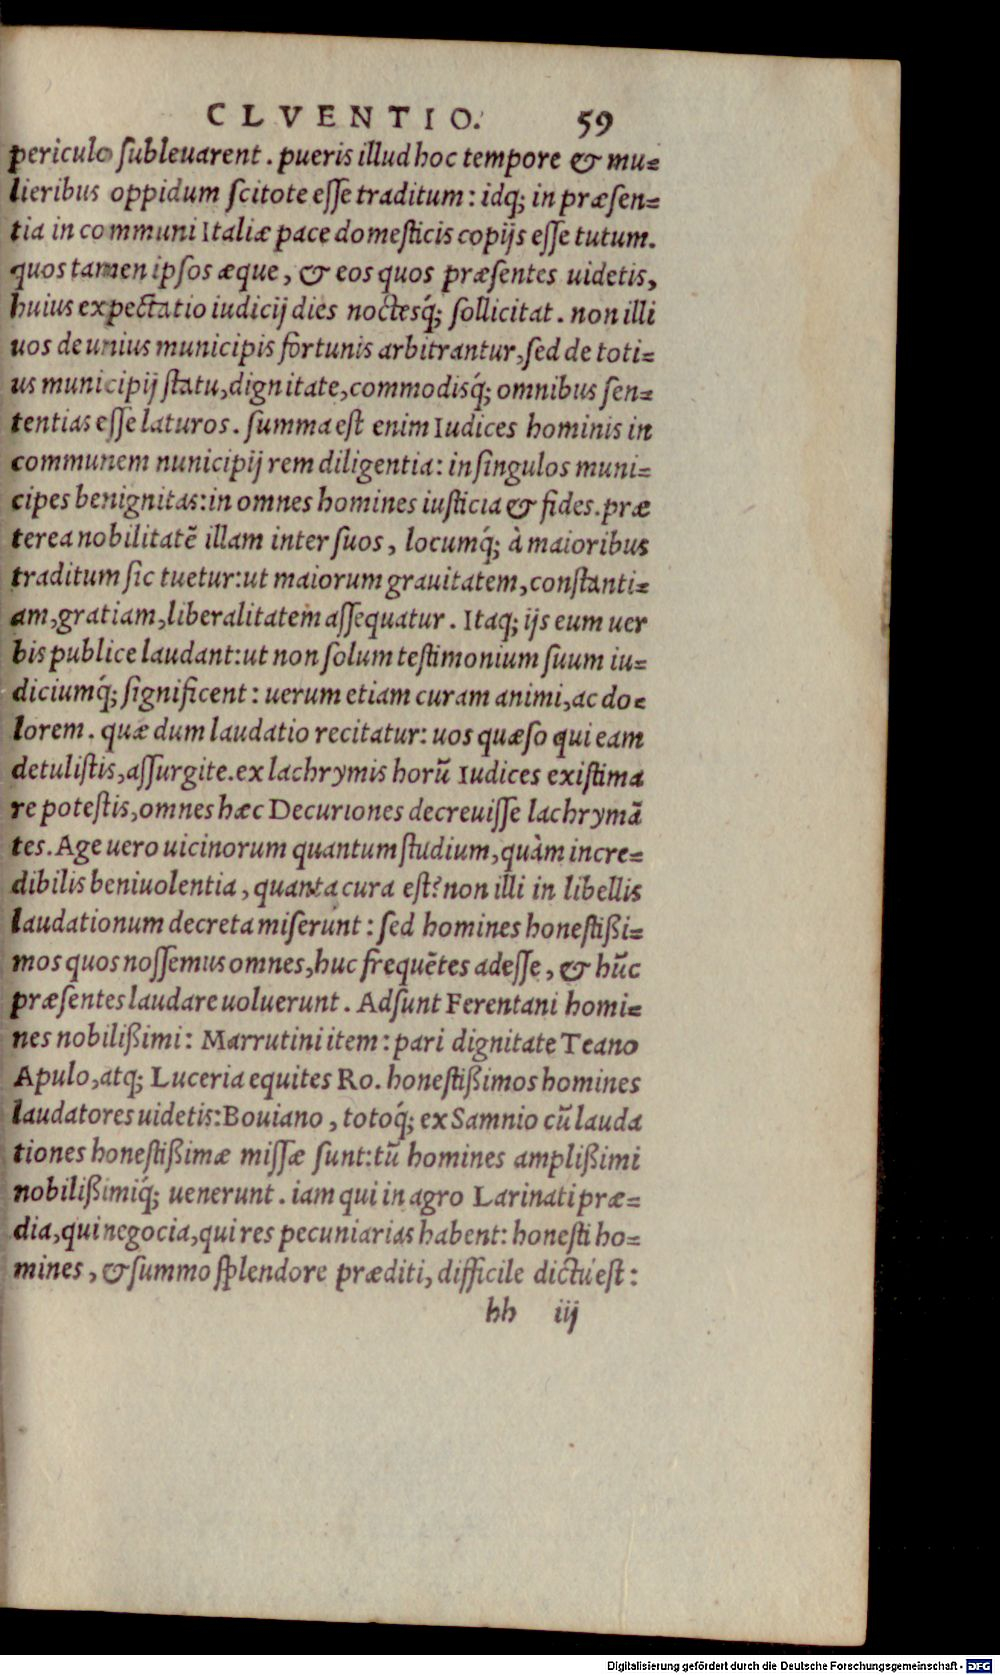 CLVENTIO. 59
periculo ſubleuarent. pueris illud hoc tempore & mu-
lieribus oppidum ſcitote eſſe traditum: idq; in præſen-
tia in communi Italiæ pace domeſticis copijs eſſe tutum.
quos tamen ipſos æque, & eos quos præſentes uidetis,
huius expectatio iudicij dies noctesq́; ſollicitat. non illi
uos de unius municipis fortunis arbitrantur, ſed de toti-
us municipij ſtatu, dignitate, commodisq́; omnibus ſen-
tentias eſſe laturos. ſumma eſt enim Iudices hominis in
communem nunicipij rem diligentia: in ſingulos muni-
cipes benignitas: in omnes homines iuſticia & fides. præ
terea nobilitatē illam inter ſuos, locumq́; à maioribus
traditum ſic tuetur: ut maiorum grauitatem, conſtanti-
am, gratiam, liberalitatem aſſequatur. Itaq; ijs eum uer
bis publice laudant: ut non ſolum teſtimonium ſuum iu-
diciumq́; ſignificent: uerum etiam curam animi, ac do-
lorem. quæ dum laudatio recitatur: uos quæſo qui eam
detuliſtis, aſſurgite. ex lachrymis horū Iudices exiſtima
re poteſtis, omnes hæc Decuriones decreuiſſe lachrymā
tes. Age uero uicinorum quantum ſtudium, quàm incre-
dibilis beniuolentia, quanta cura eſt? non illi in libellis
laudationum decreta miſerunt: ſed homines honeſtißi-
mos quos noſſemus omnes, huc frequētes adeſſe, & hūc
præſentes laudare uoluerunt. Adſunt Ferentani homi-
nes nobilißimi: Marrutini item: pari dignitate Teano
Apulo, atq; Luceria equites Ro. honeſtißimos homines
laudatores uidetis: Bouiano, totoq́; ex Samnio cū lauda
tiones honeſtißimæ miſſæ ſunt: tū homines amplißimi
nobilißimiq́; uenerunt. iam qui in agro Larinati præ-
dia, qui negocia, qui res pecuniarias habent: honeſti ho-
mines, & ſummo ſplendore præditi, difficile dictu eſt:
hh iij
Digitalisierung gefördert durch die Deutsche Forschungsgemeinschaft - DFG